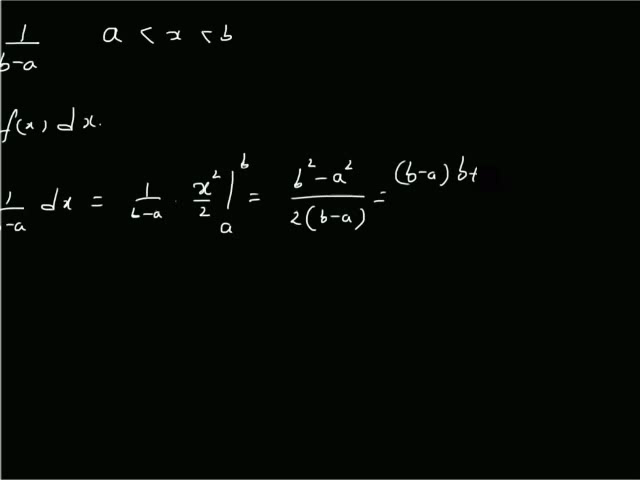 1/(b-a) a < x < b
f(x) dx.
1/(b-a) dx = 1/(b-a) · x²/2 |_a^b = (b² - a²)/(2(b-a)) = (b-a) b+